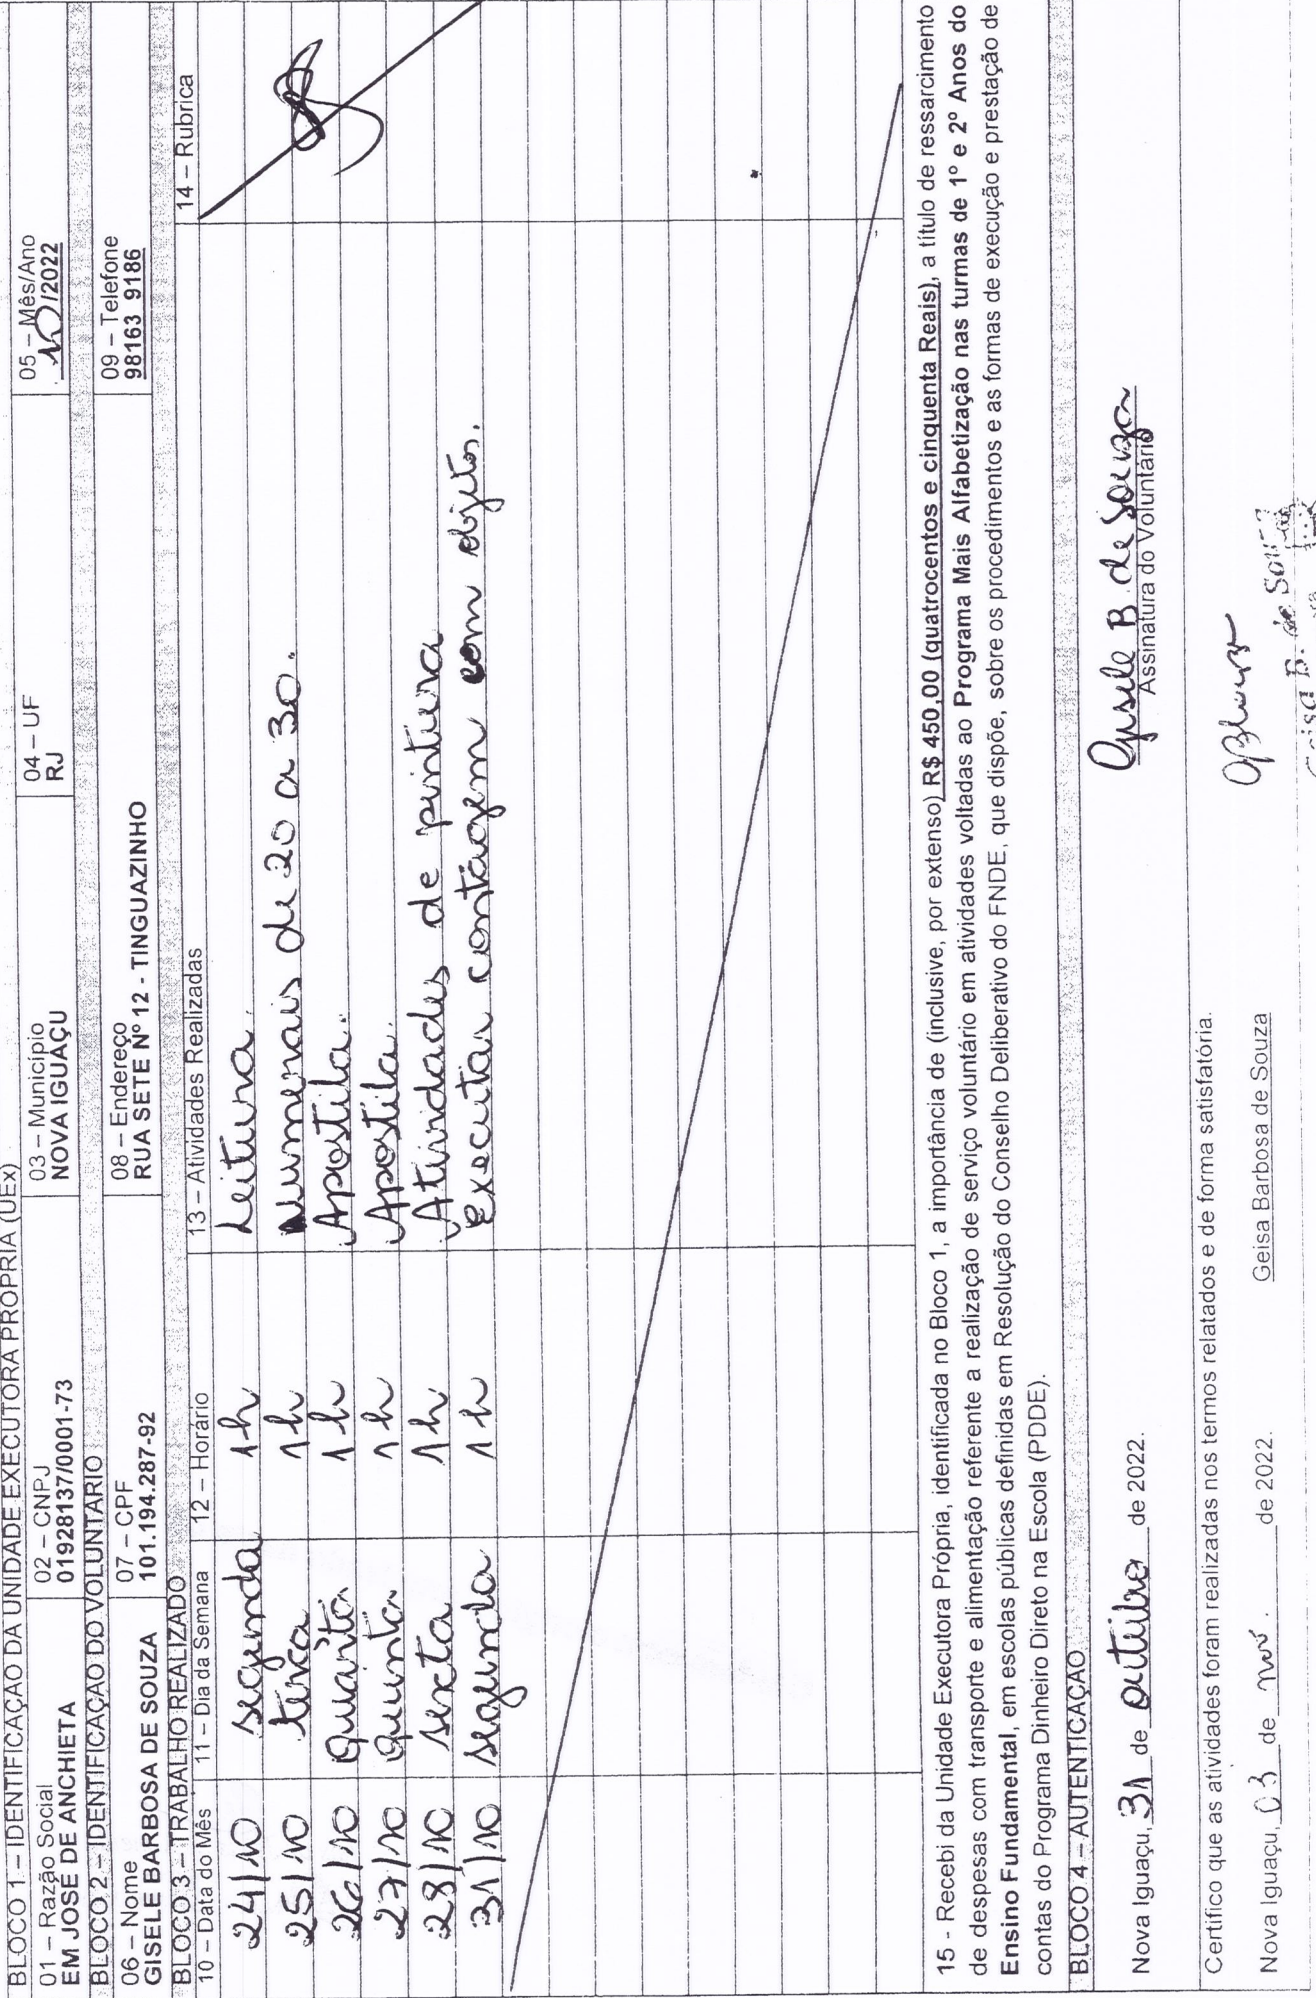 BLOCO 1 – IDENTIFICAÇÃO DA UNIDADE EXECUTORA PRÓPRIA (UEx)
01 – Razão Social 02 – CNPJ 03 – Município 04 – UF 05 – Mês/Ano
EM JOSÉ DE ANCHIETA 01928137/0001-73 NOVA IGUAÇU RJ 10/2022
BLOCO 2 – IDENTIFICAÇÃO DO VOLUNTÁRIO
06 – Nome 07 – CPF 08 – Endereço 09 – Telefone
GISELE BARBOSA DE SOUZA 101.194.287-92 RUA SETE Nº 12 - TINGUAZINHO 98163 9186
BLOCO 3 – TRABALHO REALIZADO
10 – Data do Mês 11 – Dia da Semana 12 – Horário 13 – Atividades Realizadas 14 – Rubrica
24/10 segunda 1h Leitura.
25/10 terça 1h Numerais de 20 a 30.
26/10 Quarta 1h Apostila.
27/10 Quinta 1h Apostila.
28/10 sexta 1h Atividades de pintura
31/10 segunda 1h Executar contagem com objetos.
15 - Recebi da Unidade Executora Própria, identificada no Bloco 1, a importância de (inclusive, por extenso) R$ 450,00 (quatrocentos e cinquenta Reais), a título de ressarcimento
de despesas com transporte e alimentação referente a realização de serviço voluntário em atividades voltadas ao Programa Mais Alfabetização nas turmas de 1º e 2º Anos do
Ensino Fundamental, em escolas públicas definidas em Resolução do Conselho Deliberativo do FNDE, que dispõe, sobre os procedimentos e as formas de execução e prestação de
contas do Programa Dinheiro Direto na Escola (PDDE).
BLOCO 4 – AUTENTICAÇÃO
Nova Iguaçu, 31 de outubro de 2022. Gisele B. de Souza
Assinatura do Voluntário
Certifico que as atividades foram realizadas nos termos relatados e de forma satisfatória.
Nova Iguaçu, 03 de nov. de 2022. Geisa Barbosa de Souza